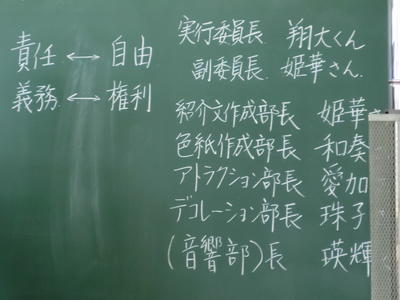 責任 ↔ 自由
義務 ↔ 権利
実行委員長 翔大くん
副委員長 姫華さん
紹介文作成部長 姫華さ
色紙作成部長 和奏
アトラクション部長 愛加
デコレーション部長 珠子
(音響部)長 瑛輝く